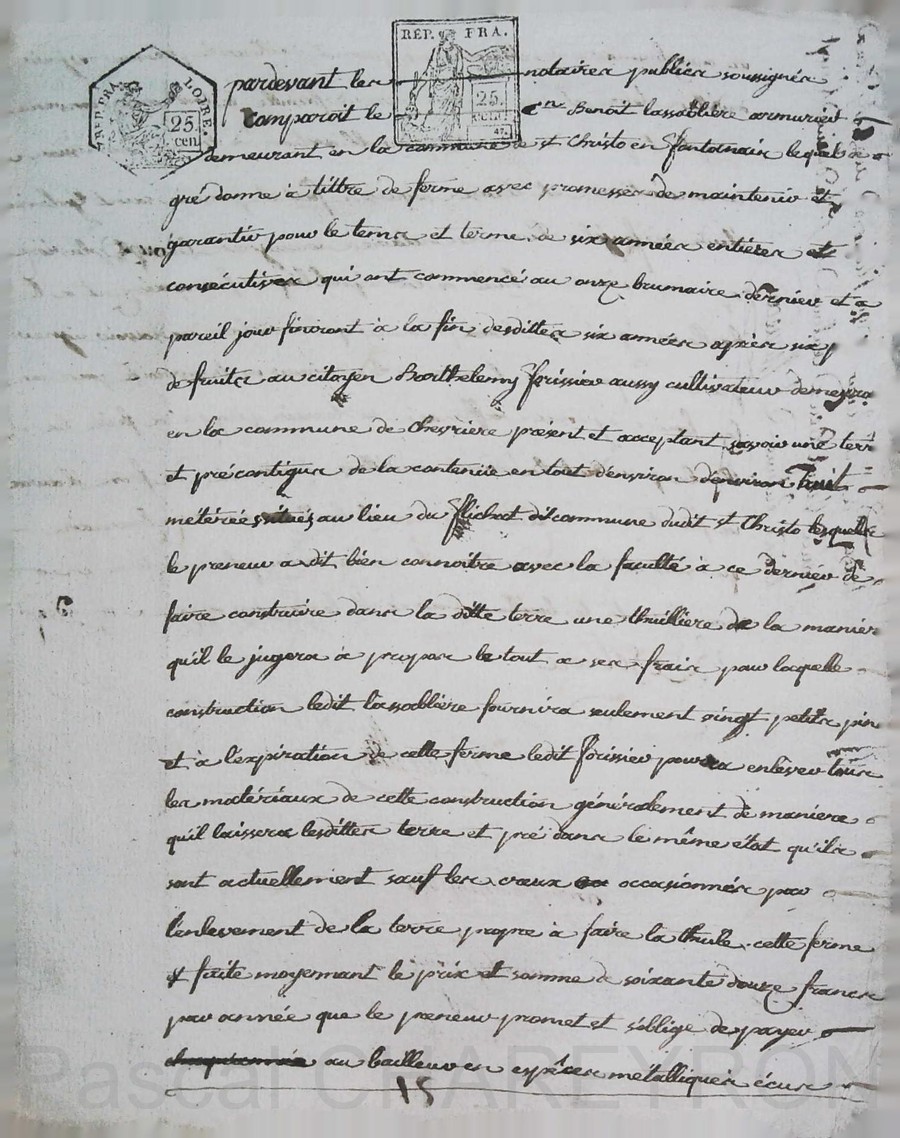 REP. FRA. LOIRE. 25. cen.
REP. FRA. 25. cen. 47.
pardevant les notaires publics soussignés
Comparoit le cen Benoit lassablière armurier
demeurant en la commune de st Christo en fontanais lequel de
gré donne à tittre de ferme avec promesse de maintenir et
garantir pour le tems et terme de six années entières et
consécutives qui ont commencé au onze brumaire dernier et a
pareil jour finiront à la fin desdittes six années après six
de fruits au citoyen Barthelemy forissier aussy cultivateur demeura
en la commune de Chevriere présent et acceptant savoir une terre
et pré contigus de la contenüe en tout d'environ d'environ huit
métérées situés au lieu du dit commune dudit st Christo lesquels
le preneur a dit bien connoitre avec la faculté à ce dernier de
faire construire dans la ditte terre une thuilliere de la maniere
qu'il le jugera à propos le tout a ses frais pour laquelle
construction ledit lassablière fournira seulement vingt petits pins
et à l'expiration de cette ferme ledit forissier pourra enlever tous
les matériaux de cette construction généralement de maniere
qu'il laissera lesdittes terre et pré dans le même état qu'ils
sont actuellement sauf les creux occasionnés par
l'enlevement de la terre propre à faire la thule. cette ferme
faite moyennant le prix et somme de soixante douze francs
par année que le preneur promet et s'oblige de payer
au bailleur en espèces métalliques écus
15
Pascal CHAREYRON